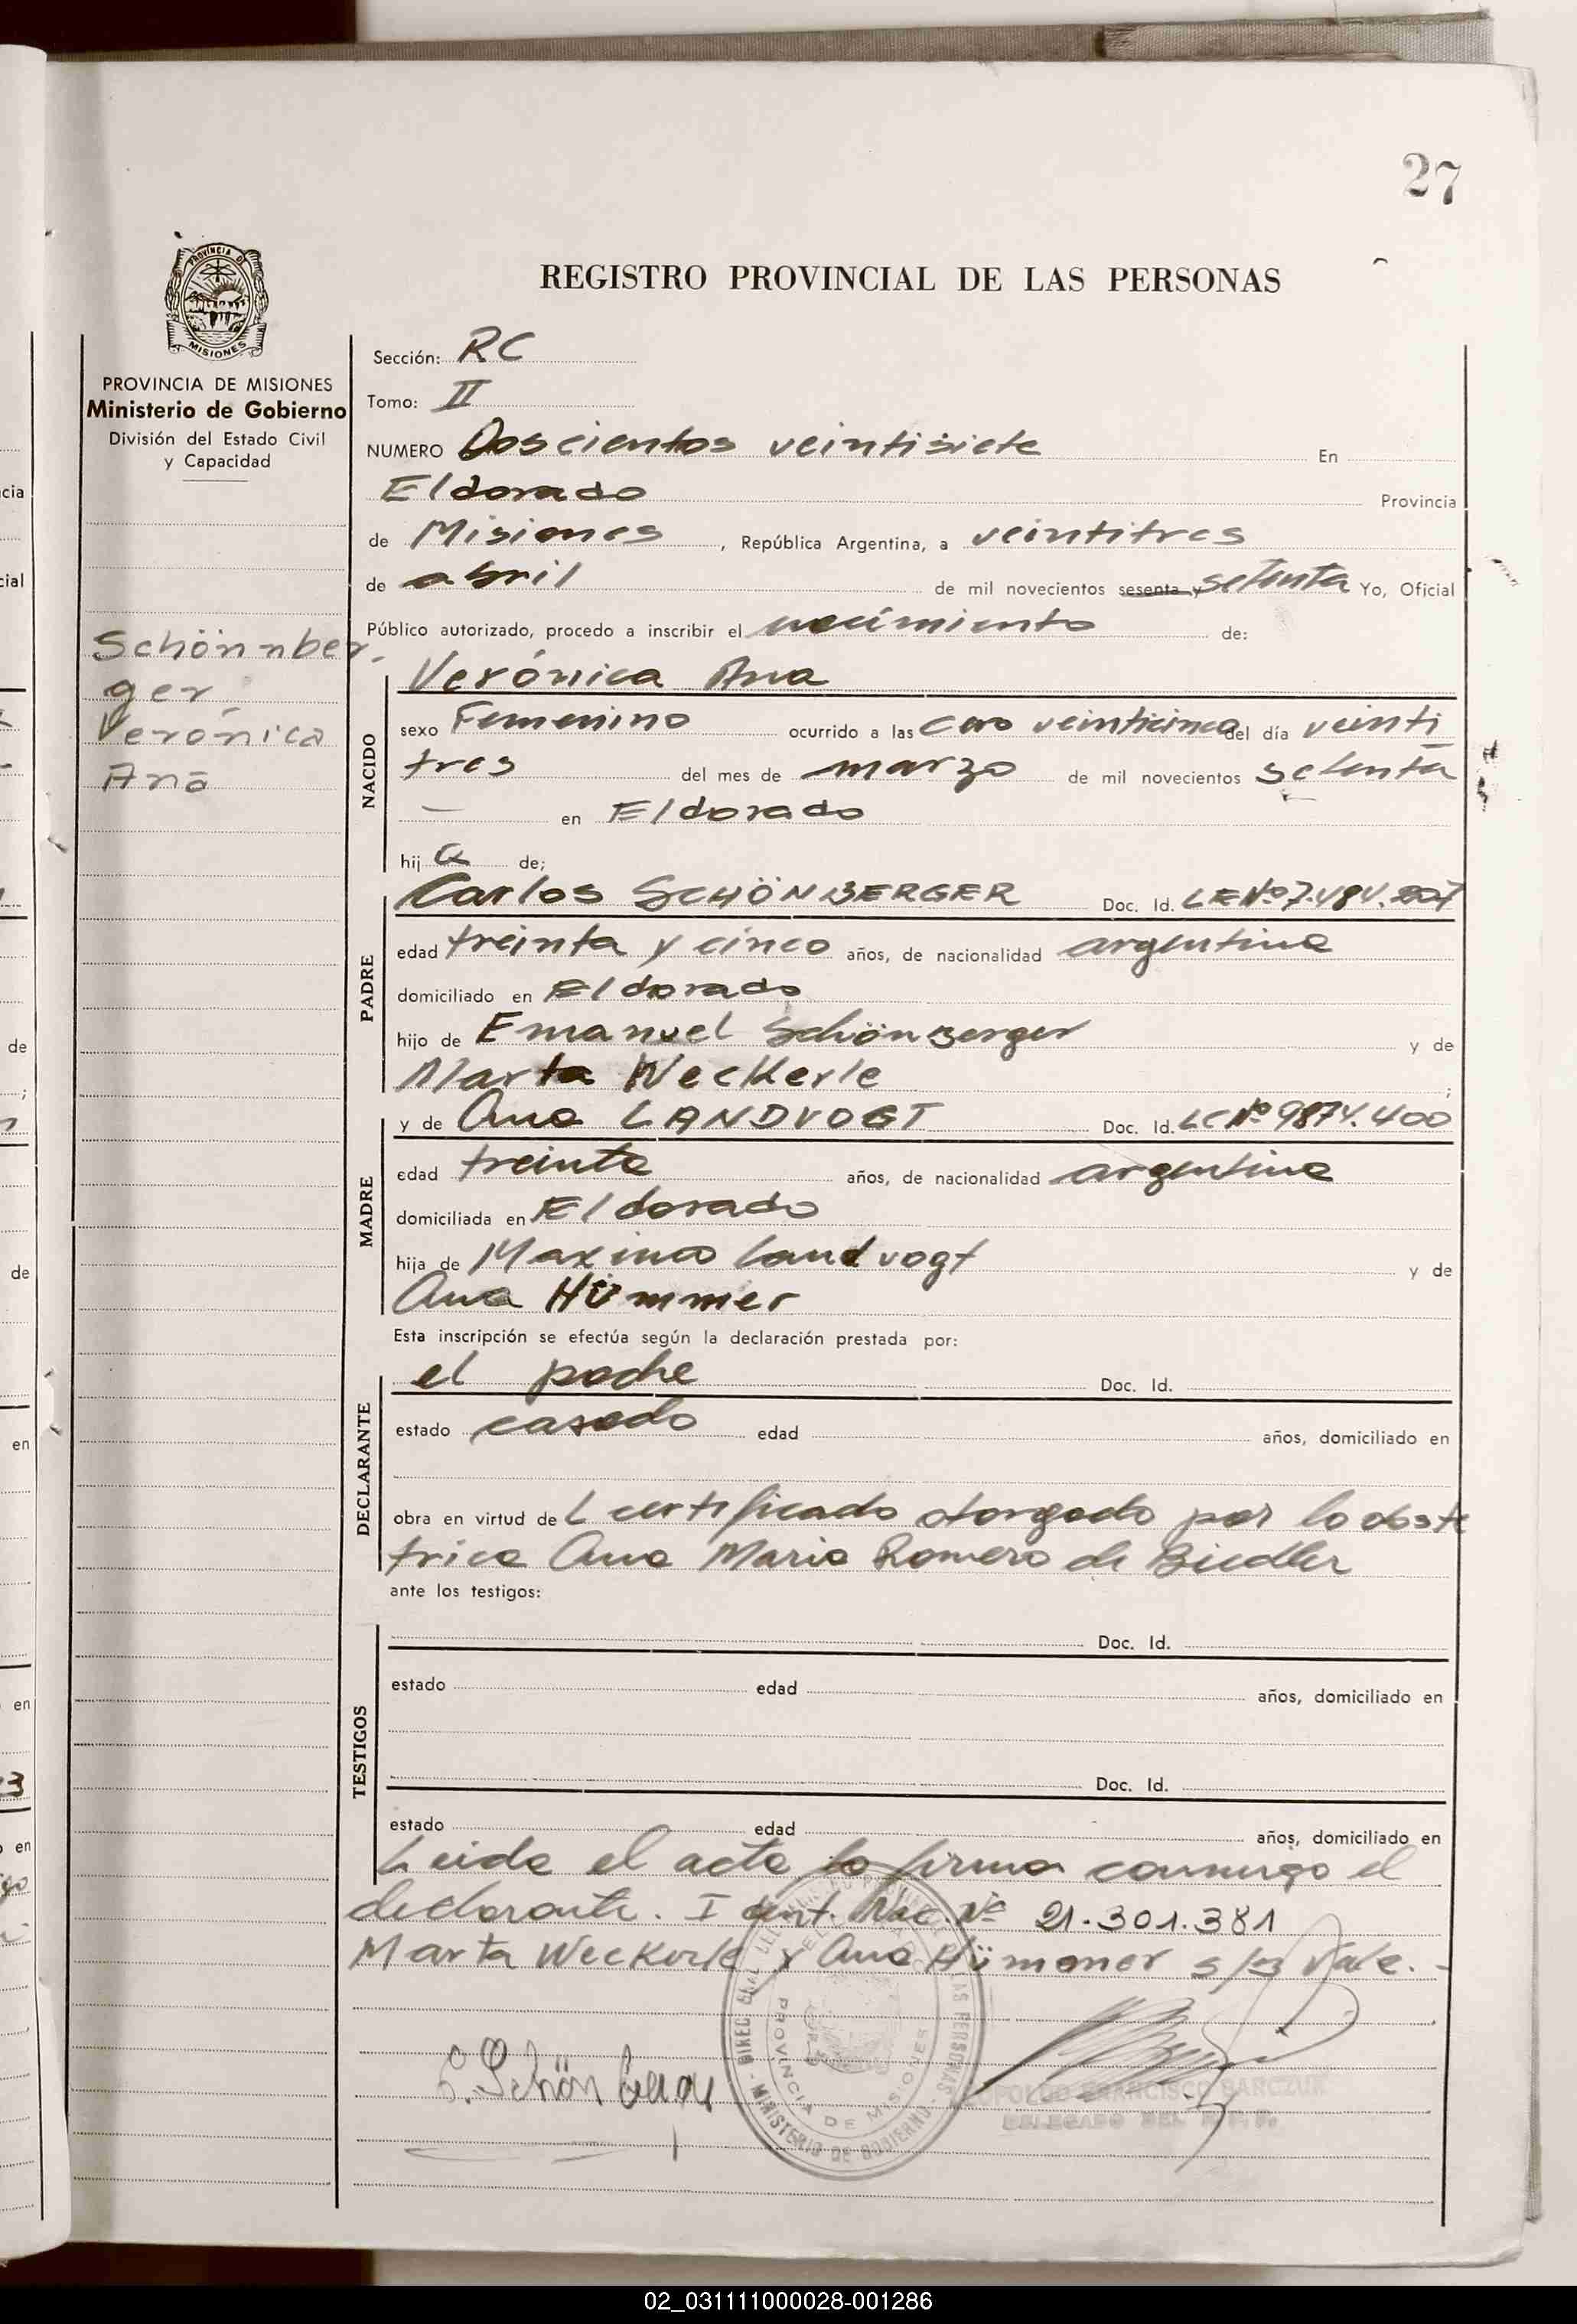 27
REGISTRO PROVINCIAL DE LAS PERSONAS
PROVINCIA DE MISIONES
PROVINCIA DE MISIONES
Ministerio de Gobierno
División del Estado Civil
y Capacidad
Schönnber
ger
Verónica
Ana
Sección: RC
Tomo: II
NUMERO Doscientos veintisiete En
Eldorado Provincia
de Misiones, República Argentina, a veintitres
de abril de mil novecientos sesenta y setenta Yo, Oficial
Público autorizado, procedo a inscribir el nacimiento de:
Verónica Ana
NACIDO
sexo Femenino ocurrido a las cero veinticinco del día veinti
tres del mes de marzo de mil novecientos setenta
— en Eldorado
hija de;
Carlos SCHÖNBERGER Doc. Id. LE Nº 7.484.207
PADRE
edad treinta y cinco años, de nacionalidad argentina
domiciliado en Eldorado
hijo de Emanuel Schönberger y de
Marta Weckerle ;
y de Ana LANDVOGT Doc. Id. LC Nº 9874.400
MADRE
edad treinta años, de nacionalidad argentina
domiciliada en Eldorado
hija de Maximo Landvogt y de
Ana Hümmer
Esta inscripción se efectúa según la declaración prestada por:
el padre Doc. Id.
DECLARANTE
estado casado edad años, domiciliado en
obra en virtud del certificado otorgado por la obste
trica Ana Maria Romero de Biedler
ante los testigos:
TESTIGOS
Doc. Id.
estado edad años, domiciliado en
Doc. Id.
estado edad años, domiciliado en
Leida el acta la firma conmigo el
declarante. Ident. Nac. Nº 21.301.381
Marta Weckerle y Ana Hümmer s/r Vale.-
C. Schönberger
PROVINCIA DE MISIONES
MINISTERIO DE GOBIERNO
LEOPOLDO FRANCISCO BARCZUK
DELEGADO DEL R.P.P.
02_031111000028-001286